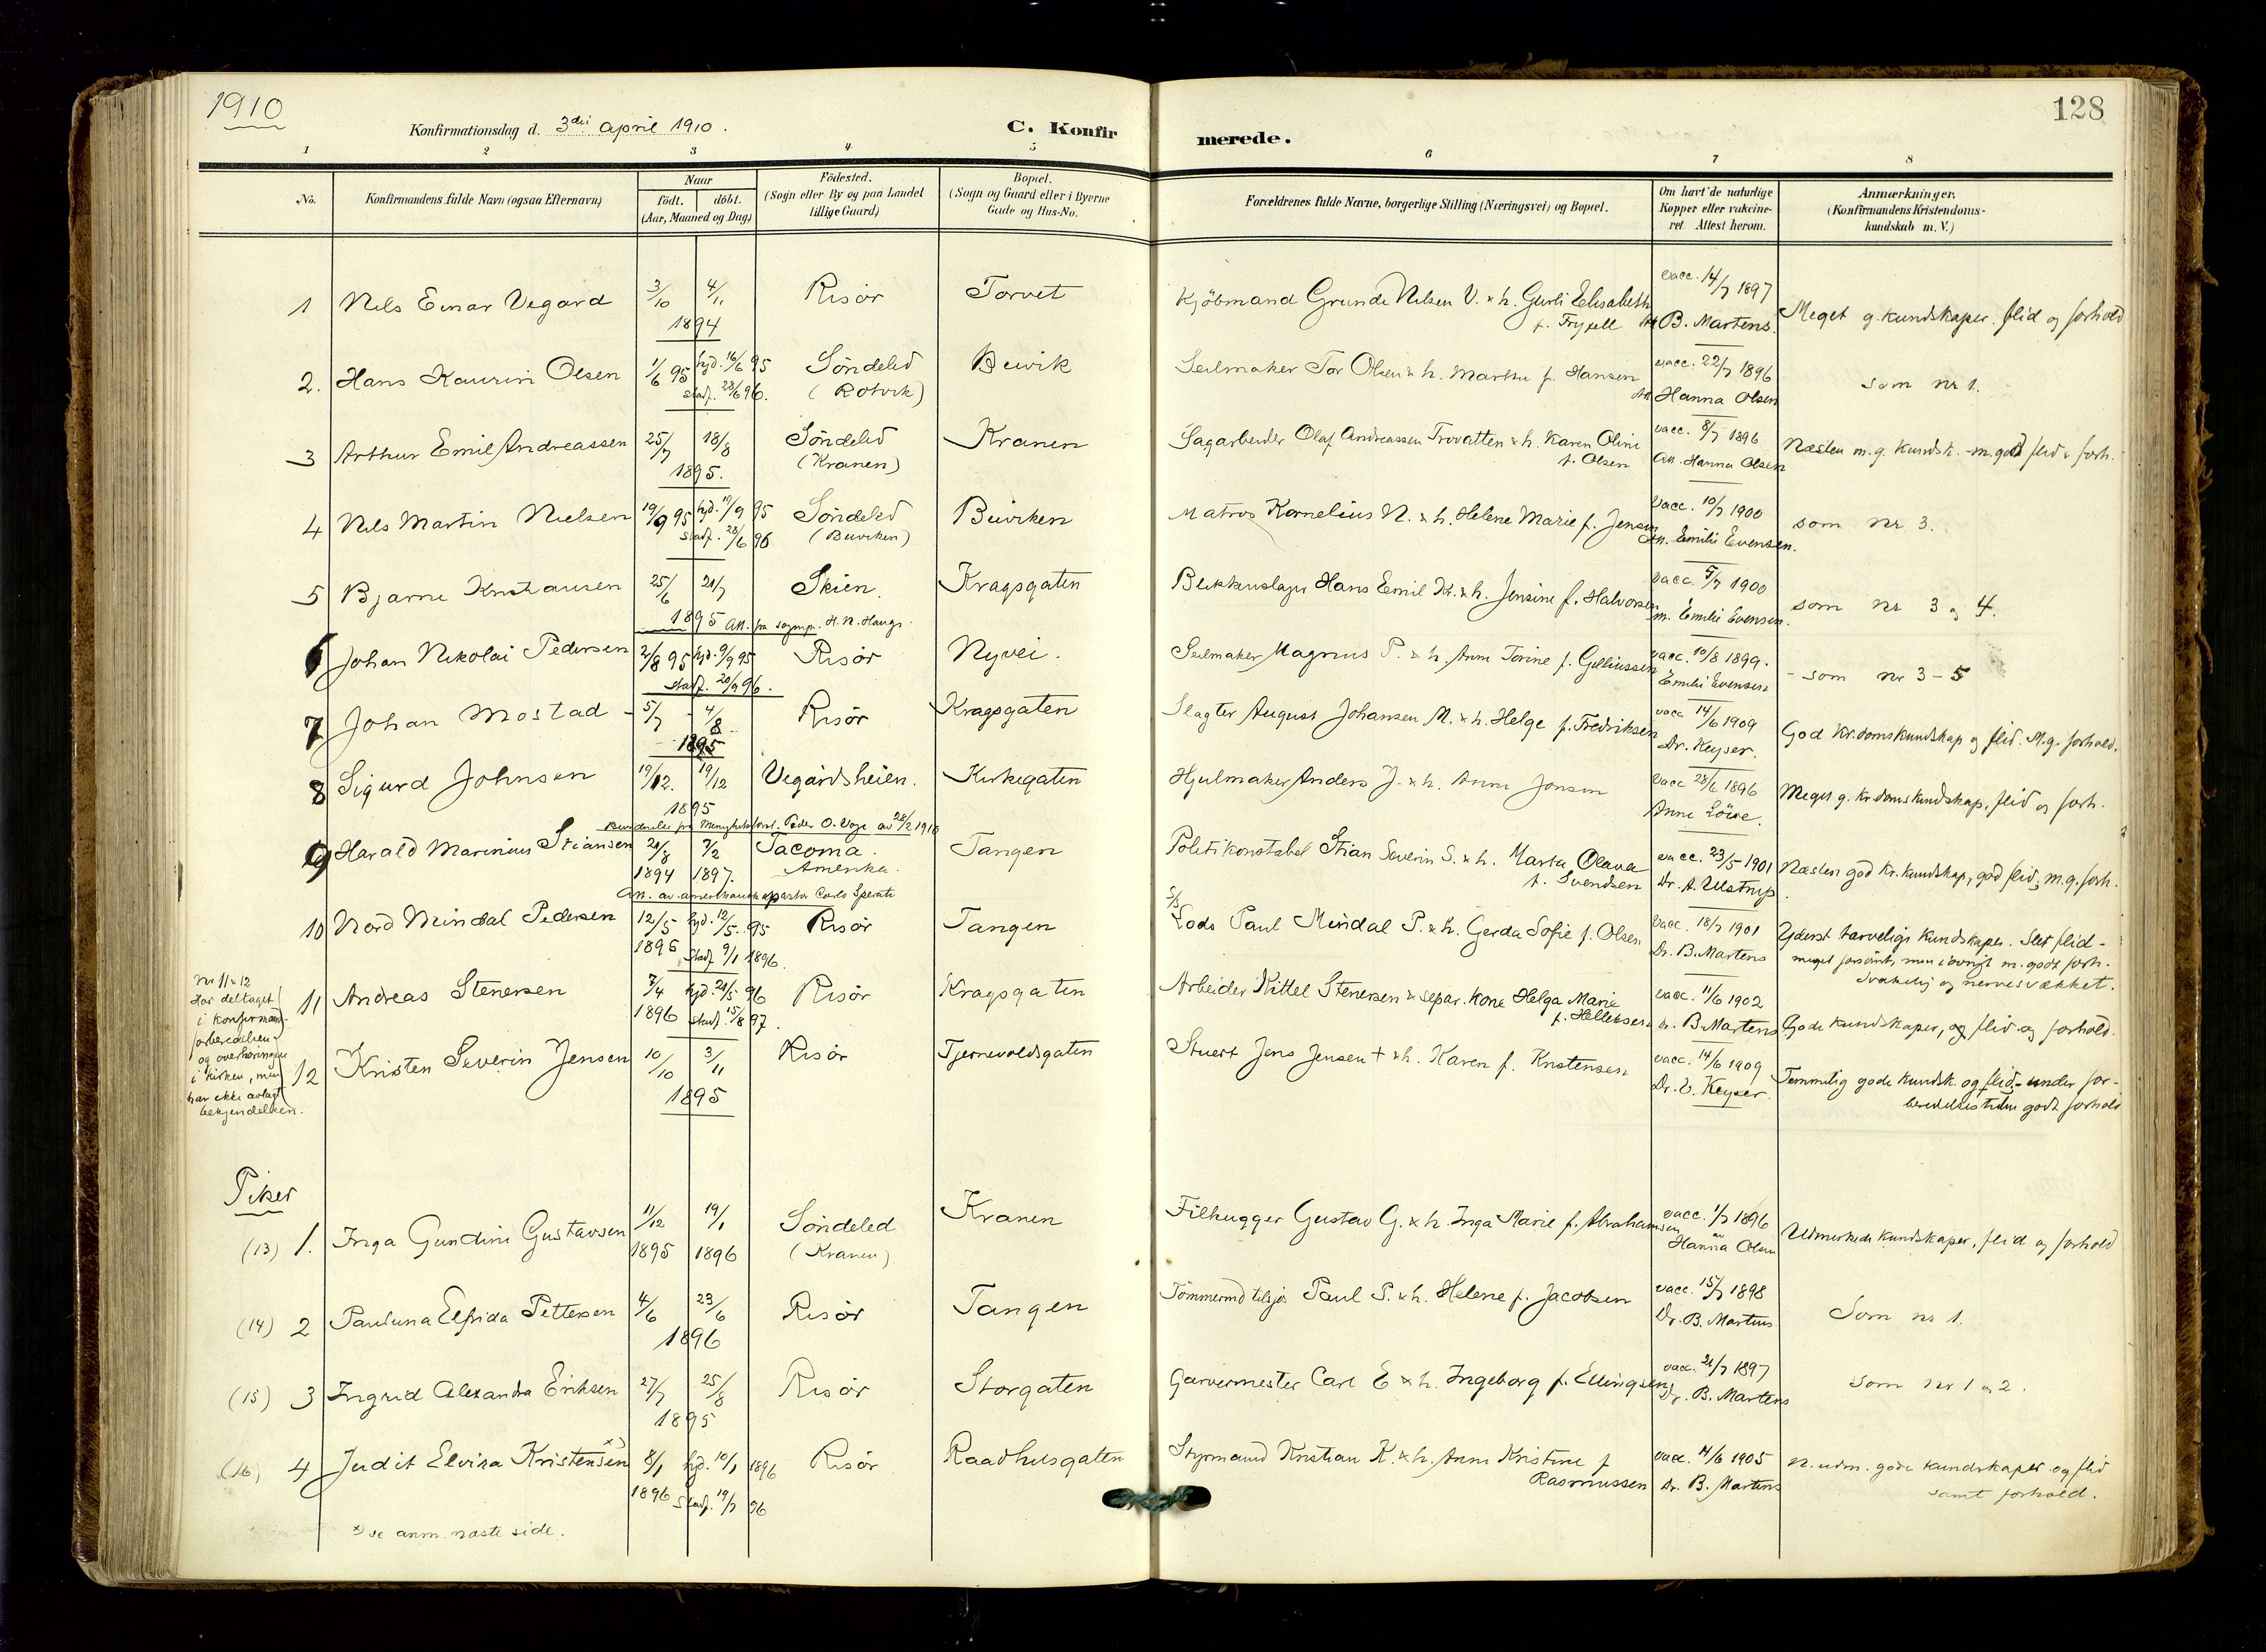 1910
128
Konfirmationsdag d. 3die April 1910.
C. Konfirmerede.
1 2 3 4 5 6 7 8
No.
Konfirmandens fulde Navn (ogsaa Efternavn)
Naar
födt. döbt.
(Aar, Maaned og Dag)
Födested.
(Sogn eller By og paa Landet
tillige Gaard)
Bopæl.
(Sogn og Gaard eller i Byerne
Gade og Hus-No.
Forældrenes fulde Navne, borgerlige Stilling (Næringsvei) og Bopæl.
Om havt de naturlige
Kopper eller vakcine-
ret Attest herom.
Anmærkninger.
(Konfirmandens Kristendoms-
kundskab m. V.)
1 Nils Einar Vegard 3/10 4/11 Risör Torvet Kjöbmand Grunde Nilsen V. & h. Gurli Elisabeth vacc. 14/7 1897 Meget g. kundskaper, flid og forhold
1894 f. Fryxell Att B. Martens.
2. Hans Kaurin Olsen 1/6 95 hjd. 16/6 95 Söndeled Buvik Seilmaker Tor Olsen & h. Marthe f. Hansen vacc. 22/7 1896 som nr 1.
stadf. 28/6 96. (Rotvik) Att Hanna Olsen
3 Arthur Emil Andreassen 25/7 18/8 Söndeled Kranen Sagarbeider Olaf Andreassen Trovatten & h. Karen Oline vacc. 8/7 1896 Næsten m.g. kundsk. - m. god flid & forh.
1895. (Kranen) f. Olsen Att. Hanna Olsen
4 Nils Martin Nielsen 19/9 95 hjd. 19/9 95 Söndeled Buviken Matros Kornelius N. & h. Helene Marie f. Jensen vacc. 10/7 1900 som nr 3.
stadf. 28/6 96 (Buviken) Att. Emilie Evensen.
5 Bjarne Kristiansen 25/6 21/7 Skien. Kragsgaten Blikkenslager Hans Emil K. & h. Jensine f. Halvorsen vacc. 5/7 1900 som nr 3 og 4.
1895 Att. fra sognepr. H. N. Haugs. m. Emilie Evensen.
6 Johan Nikolai Pedersen 21/8 95 hjd. 9/9 95 Risör Nyvei. Seilmaker Magnus P. & h. Anne Torine f. Gulliussen vacc. 10/8 1899. - som nr 3-5
stadf. 20/9 96. Emilie Evensen
7 Johan Mostad - 5/7 - 4/8 Risör Kragsgaten Slagter August Johansen M. & h. Helge f. Fredriksen vacc 14/6 1909 God kr.domskundskap og flid. M.g. forhold.
1895 Dr. Keyser.
8 Sigurd Johnsen 19/12. 19/12 Vegårdsheien. Kirkegaten Hjulmaker Anders J. & h. Anne Jonsen vacc 28/6 1896 Meget g. kr.domskundskap, flid og forh.
1895 Anne Löwe.
Bevidnelse fra menighetsforst. Peder O. Voje av 28/2 1910
9 Harald Marinius Stiansen 21/8 7/2 Tacoma. Tangen Politikonstabel Stian Severin S. & h. Marta Olava vacc. 23/5 1901 Næsten god kr.kundskap, god flid, m.g. forh.
1894 1897. Amerika. f. Svendsen Dr. A. Ulstrup
Att. av amerikansk pastor Carlo Sperati
10 Nord Mindal Pedersen 12/5 hjd. 12/5 95 Risör Tangen Lods Paul Mindal P. & h. Gerda Sofie f. Olsen vacc. 18/7 1901 Yderst tarvelige kundskaper. Slet flid -
1895 stadf 9/1 1896. Dr. B. Martens meget forsömt, men iövrigt m. godt forh.
Svakelig og nervesvækket.
11 Andreas Stenersen 7/4 hjd. 21/5 96 Risör Kragsgaten Arbeider Kittel Stenersen & separ. kone Helga Marie vacc. 11/6 1902 Gode kundskaper, flid og forhold.
1896 stadf. 15/8 97. f. Helleksen Dr. B. Martens
12 Kristen Severin Jensen 10/10 3/11 Risör Tjernevoldsgaten Stuert Jens Jensen † & h. Karen f. Kristensen vacc. 14/6 1909 Temmelig gode kundsk. og flid - under for-
1895 Dr. V. Keyser. beredelsestiden godt forhold
Nr 11 & 12
har deltaget
i konfirmant-
forberedelsen
og overhöringen
i kirken, men
har ikke avlagt
bekjendelsen.
Piker
(13) 1. Inga Gundine Gustavsen 11/12 19/1 Söndeled Kranen Filhugger Gustav G. & h. Inga Marie f. Abrahamsen vacc. 1/7 1896 Udmerkede kundskaper, flid og forhold
1895 1896 (Kranen) av Hanna Olsen
(14) 2 Pauluna Elfrida Pettersen 4/6 23/6 Risör Tangen Tömmermd tilsjös Paul P. & h. Helene f. Jacobsen vacc. 15/7 1898 Som nr 1.
1896 Dr. B. Martens
(15) 3 Ingrid Alexandra Eriksen 27/7 25/8 Risör Storgaten Garvermester Carl E & h. Ingeborg f. Ellingsen vacc. 21/7 1897 som nr 1 og 2.
1895 Dr. B. Martens
(16) 4 Judit Elvira Kristensen x) 8/1 hjd. 10/1 1896 Risör Raadhusgaten Styrmand Kristian K. & h. Anne Kristine f vacc. 14/6 1905 N. udm. gode kundskaper og flid
1896 stadf. 19/7 96 Rasmussen Dr. B. Martens samt forhold.
x) se anm. næste side.